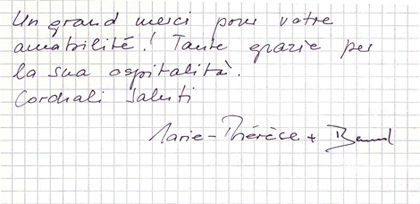 Un grand merci pour votre
amabilité! Tante grazie per
la sua ospitalità.
Cordiali saluti
Marie-Thérèse +